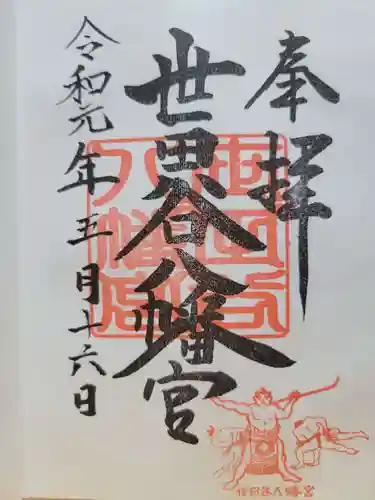 奉拝
世田谷八幡宮
令和元年五月十六日
世田谷
八幡宮
世田谷八幡宮